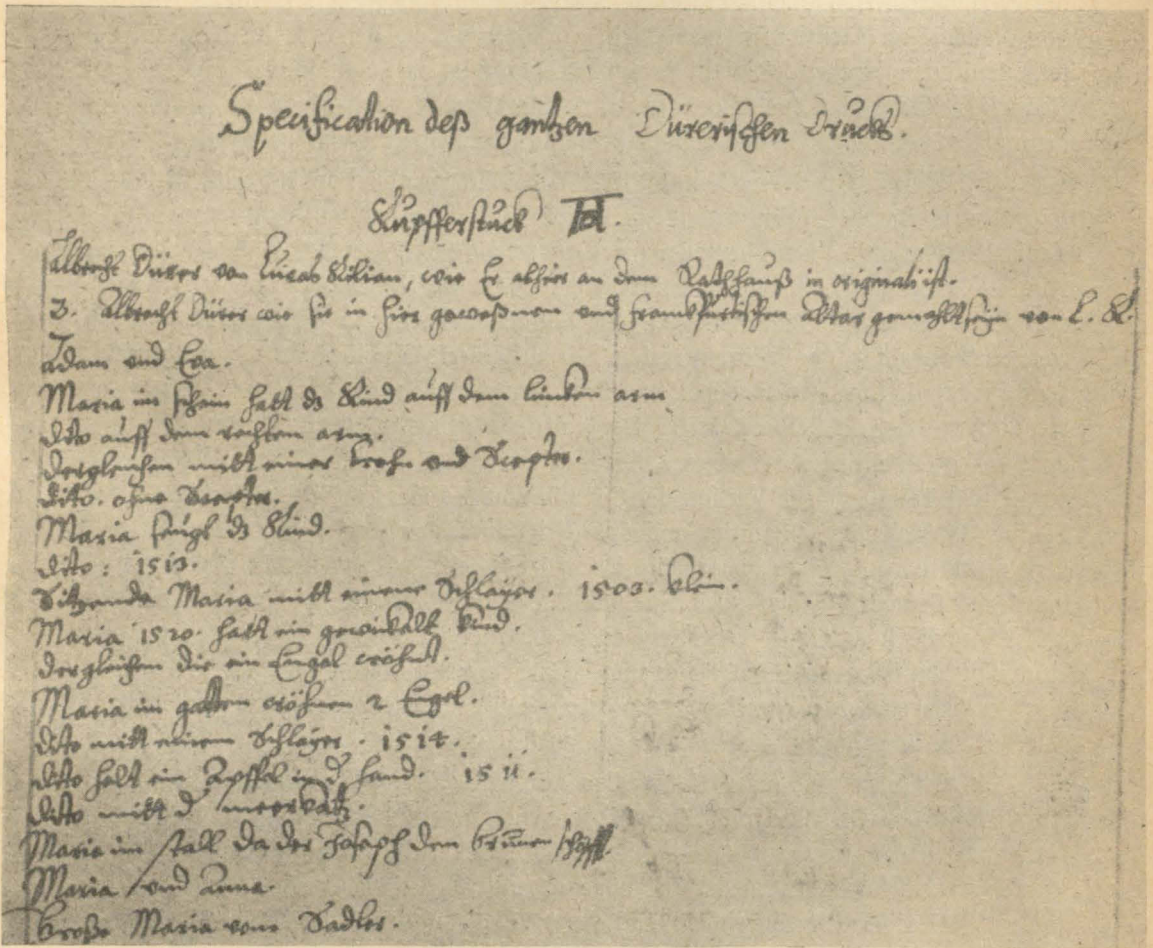 Specification deß gantzen Dürerischen Drucks.
Kupfferstuck AD.
Albrecht Dürer von Lucas Kilian, wie Er alhier an dem Rathhauß in originali ist.
2. Albrecht Dürer wie sie in hier geweßnen und Franckfurtischen Altar gemahlt sein von L. K.
Adam und Eva.
Maria im schein hatt dz Kind auff dem lincken arm
dito auff dem rechten arm.
dergleichen mitt einer Crohn und Scepter.
dito. ohne Scepter.
Maria seugt dz Kind.
dito: 1513.
Sitzende Maria mitt einem Schlayer. 1503. klein.
Maria 1520. hatt ein gewickelt kind.
dergleichen die ein Engel cröhnt.
Maria im garten cröhnen 2 Engel.
dito mitt einem Schlayer. 1514.
ditto helt ein Apffel in d hand. 1511.
ditto mitt d meerkatz.
Maria im stall da der Joseph dem brunnen schöpfft.
Maria und Anna.
Große Maria vom Sadler.